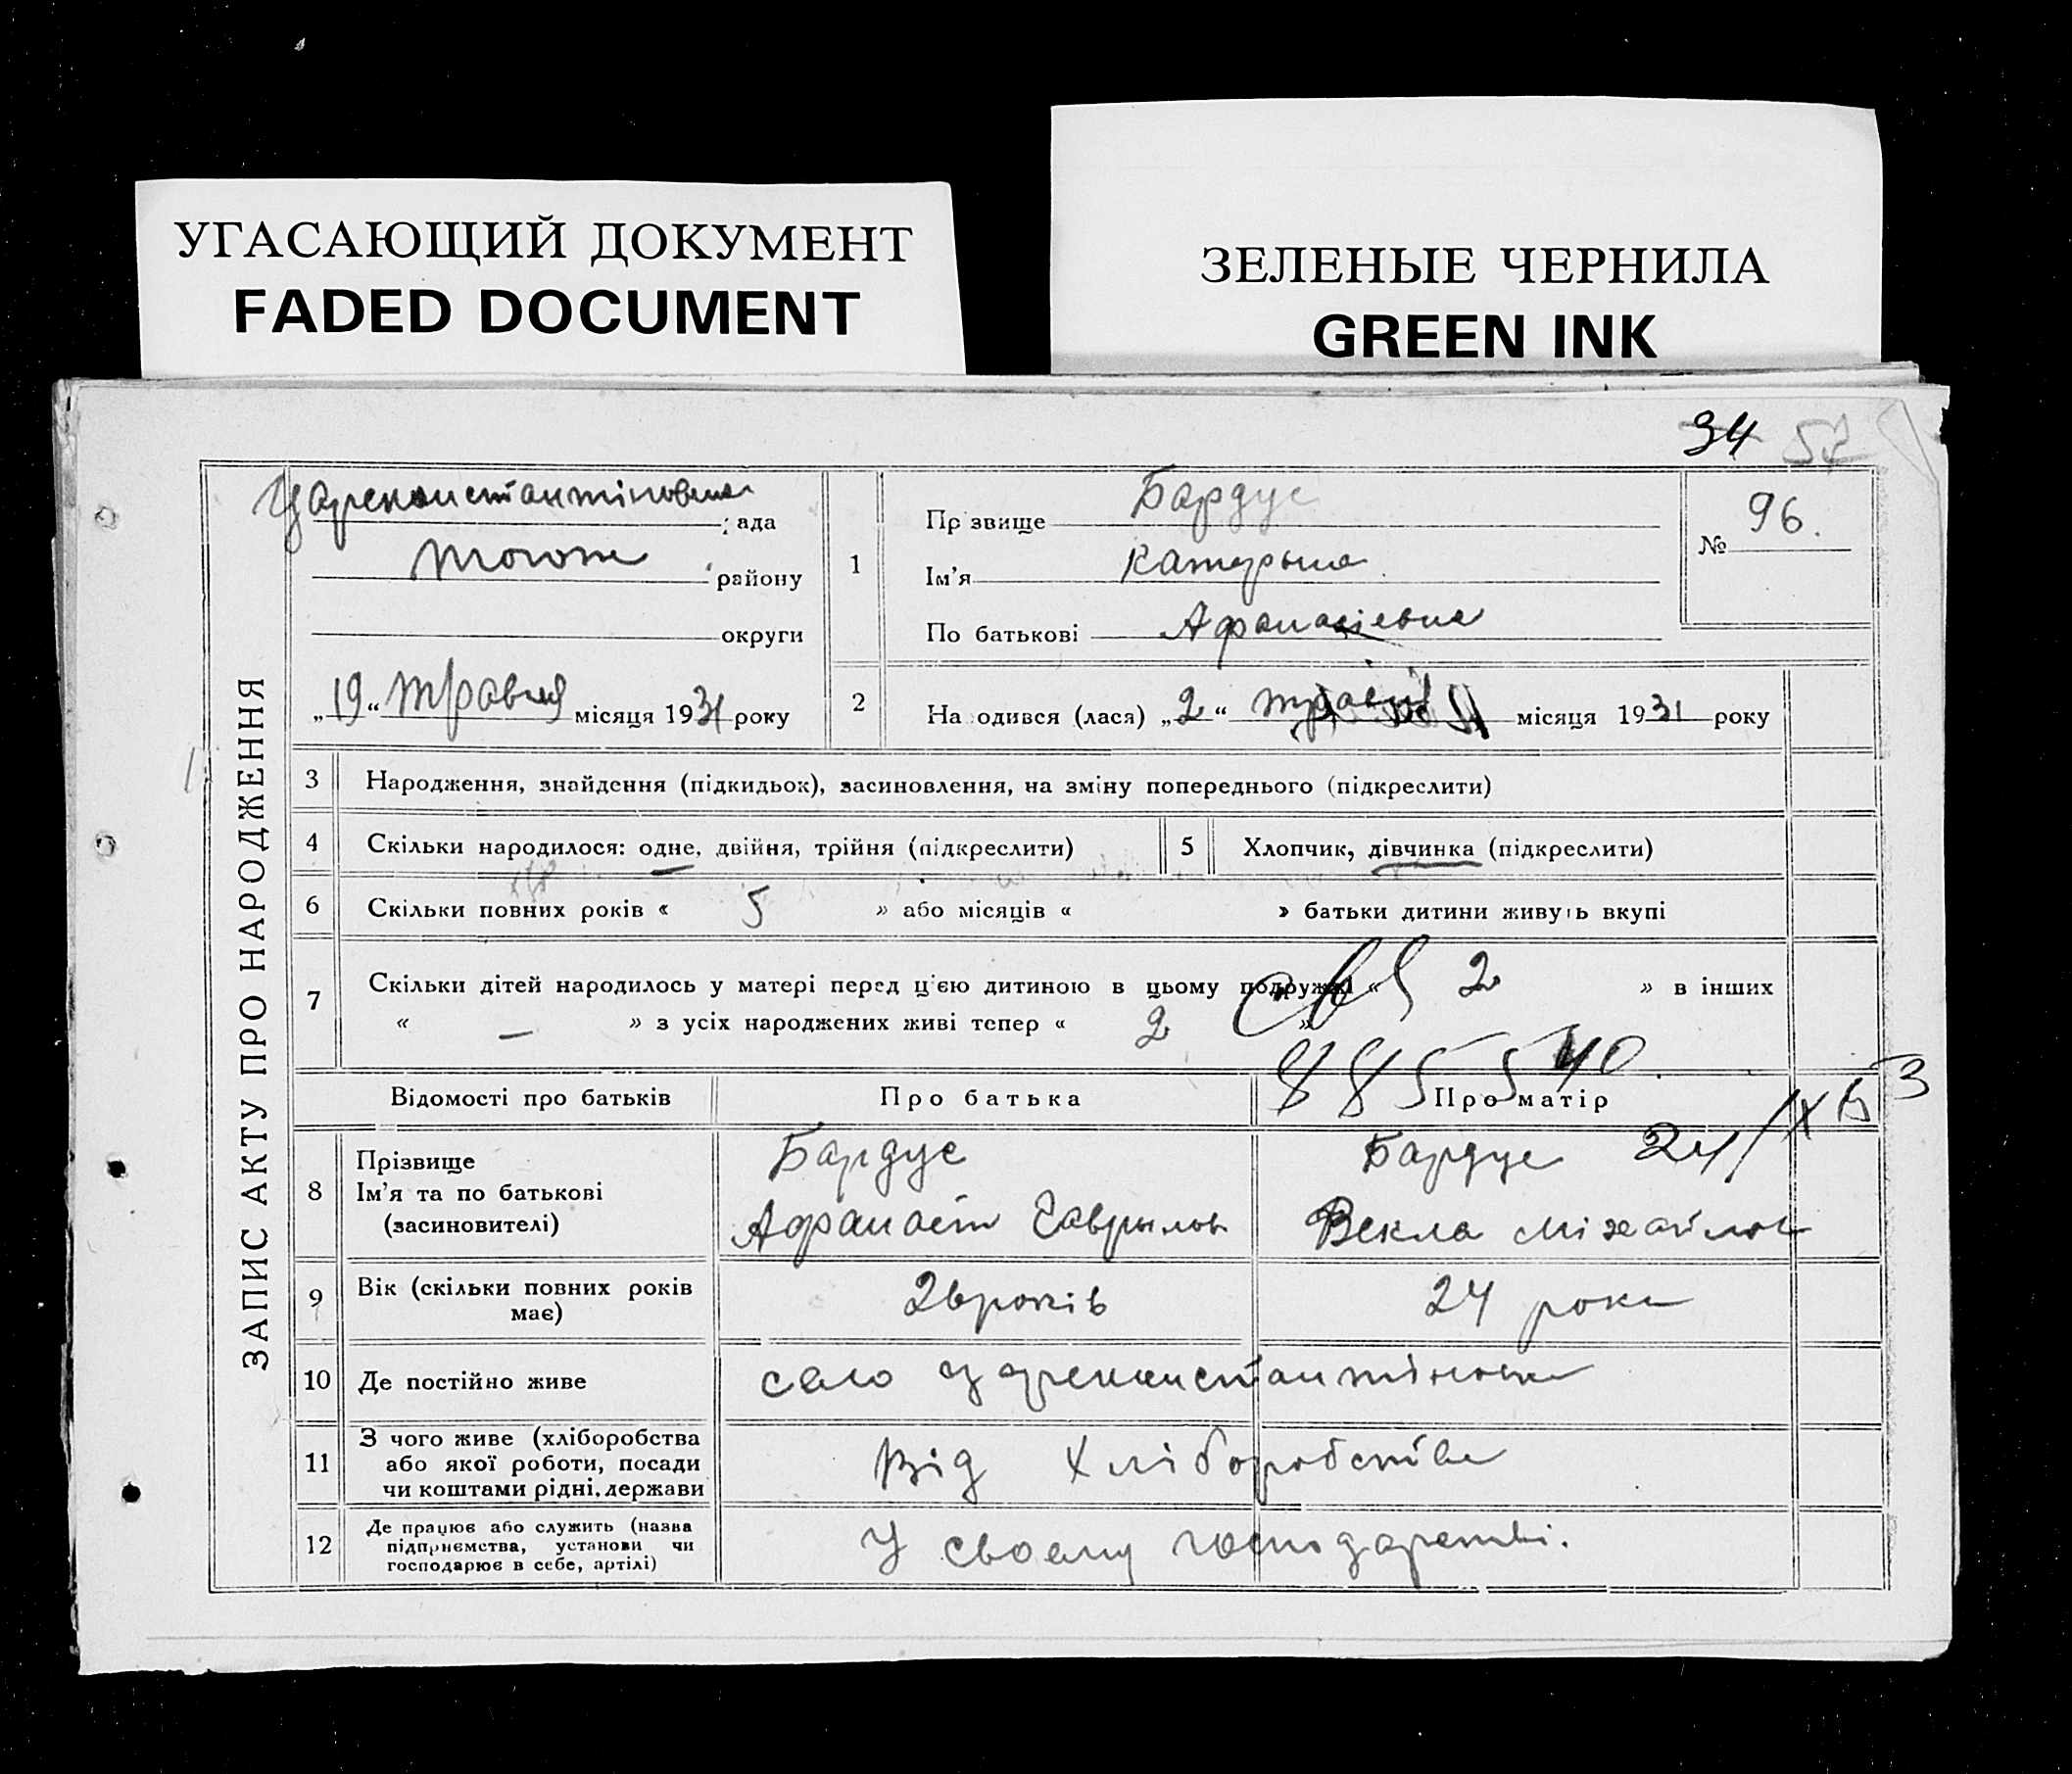 УГАСАЮЩИЙ ДОКУМЕНТ
FADED DOCUMENT
ЗЕЛЕНЫЕ ЧЕРНИЛА
GREEN INK
34 57
ЗАПИС АКТУ ПРО НАРОДЖЕННЯ
Цареконстантіновська рада
тогож району
округи
„19“ травня місяця 1931 року
1
Прізвище Бардус
Ім’я Катерына
По батькові Афанасіевна
№ 96.
2 Народився (лася) „2“ травня місяця 1931 року
3 Народження, знайдення (підкидьок), засиновлення, на зміну попереднього (підкреслити)
4 Скільки народилося: одне, двійня, трійня (підкреслити)
5 Хлопчик, дівчинка (підкреслити)
6 Скільки повних років « 5 » або місяців « » батьки дитини живуть вкупі
7 Скільки дітей народилось у матері перед цією дитиною в цьому подружжі « 2 » в інших
« — » з усіх народжених живі тепер « 2 »
св
885540
24/IX 53
Відомості про батьків Про батька Про матір
8 Прізвище
Ім’я та по батькові
(засиновителі)
Бардус
Афанасій Гаврылов
Бардус
Векла Міхайлов
9 Вік (скільки повних років
має)
26 років
24 роки
10 Де постійно живе
село Цареконстантіновка
11 З чого живе (хліборобства
або якої роботи, посади
чи коштами рідні, держави
Від Хліборобства
12 Де працює або служить (назва
підприємства, установи чи
господарює в себе, артілі)
У своему господарстві.